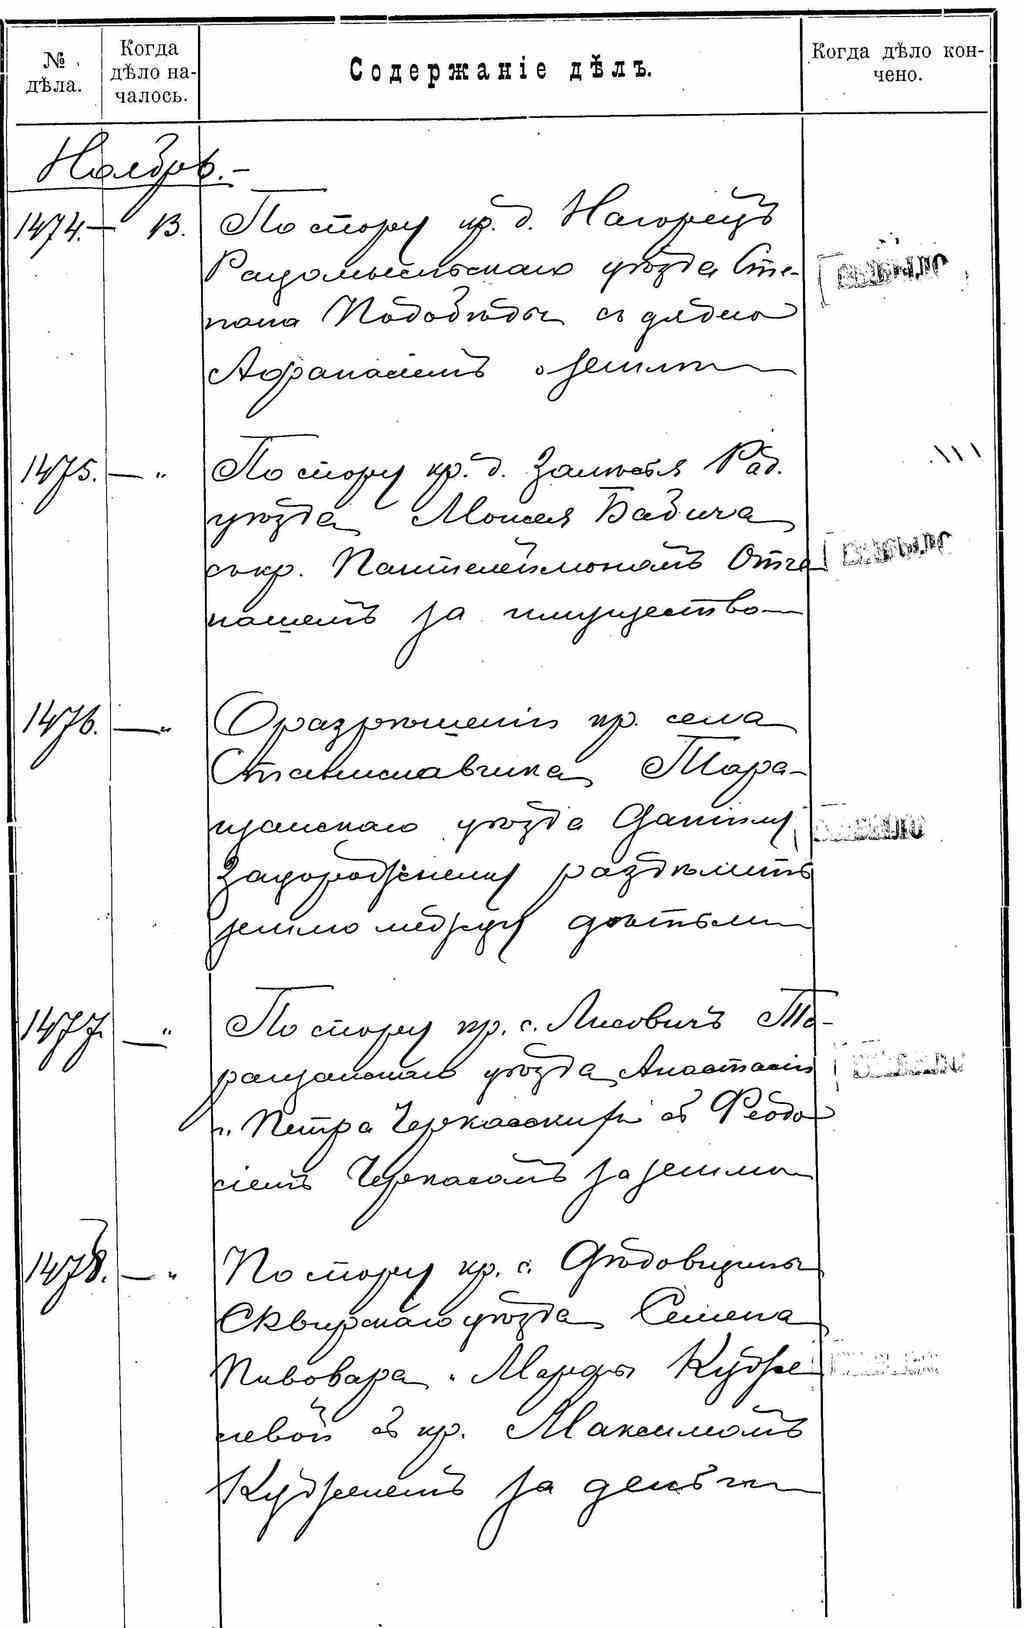 № дѣла.
Когда дѣло на-
чалось.
Содержаніе дѣлъ.
Когда дѣло кон-
чено.
Ноябрь.-
1474.- 13. По спору кр. д. Нагорецъ
Радомысльскаго уѣзда Сте-
пана Подобѣды съ дядею
Афанасіемъ о земли
1475. - " По спору кр. д. Залѣсья Рад.
уѣзда Моисея Бабича
съ кр. Пантелеймономъ Отче
нашемъ за имущество
1476. - " О разрѣшеніи кр. села
Станиславчика Тара-
щанскаго уѣзда Данилу
Загородженему раздѣлить
землю между дѣтьми
1477. - " По спору кр. с. Лисовичъ Та-
ращанскаго уѣзда Анастасіи
и Петра Черкасскихъ съ Феодо
сіемъ Черкасомъ за землю
1478. - " По спору кр. с. Дѣдовщины
Сквирскаго уѣзда Семена
Пивовара и Марфы Кудже
левой съ кр. Максимомъ
Куджелемъ за деньги